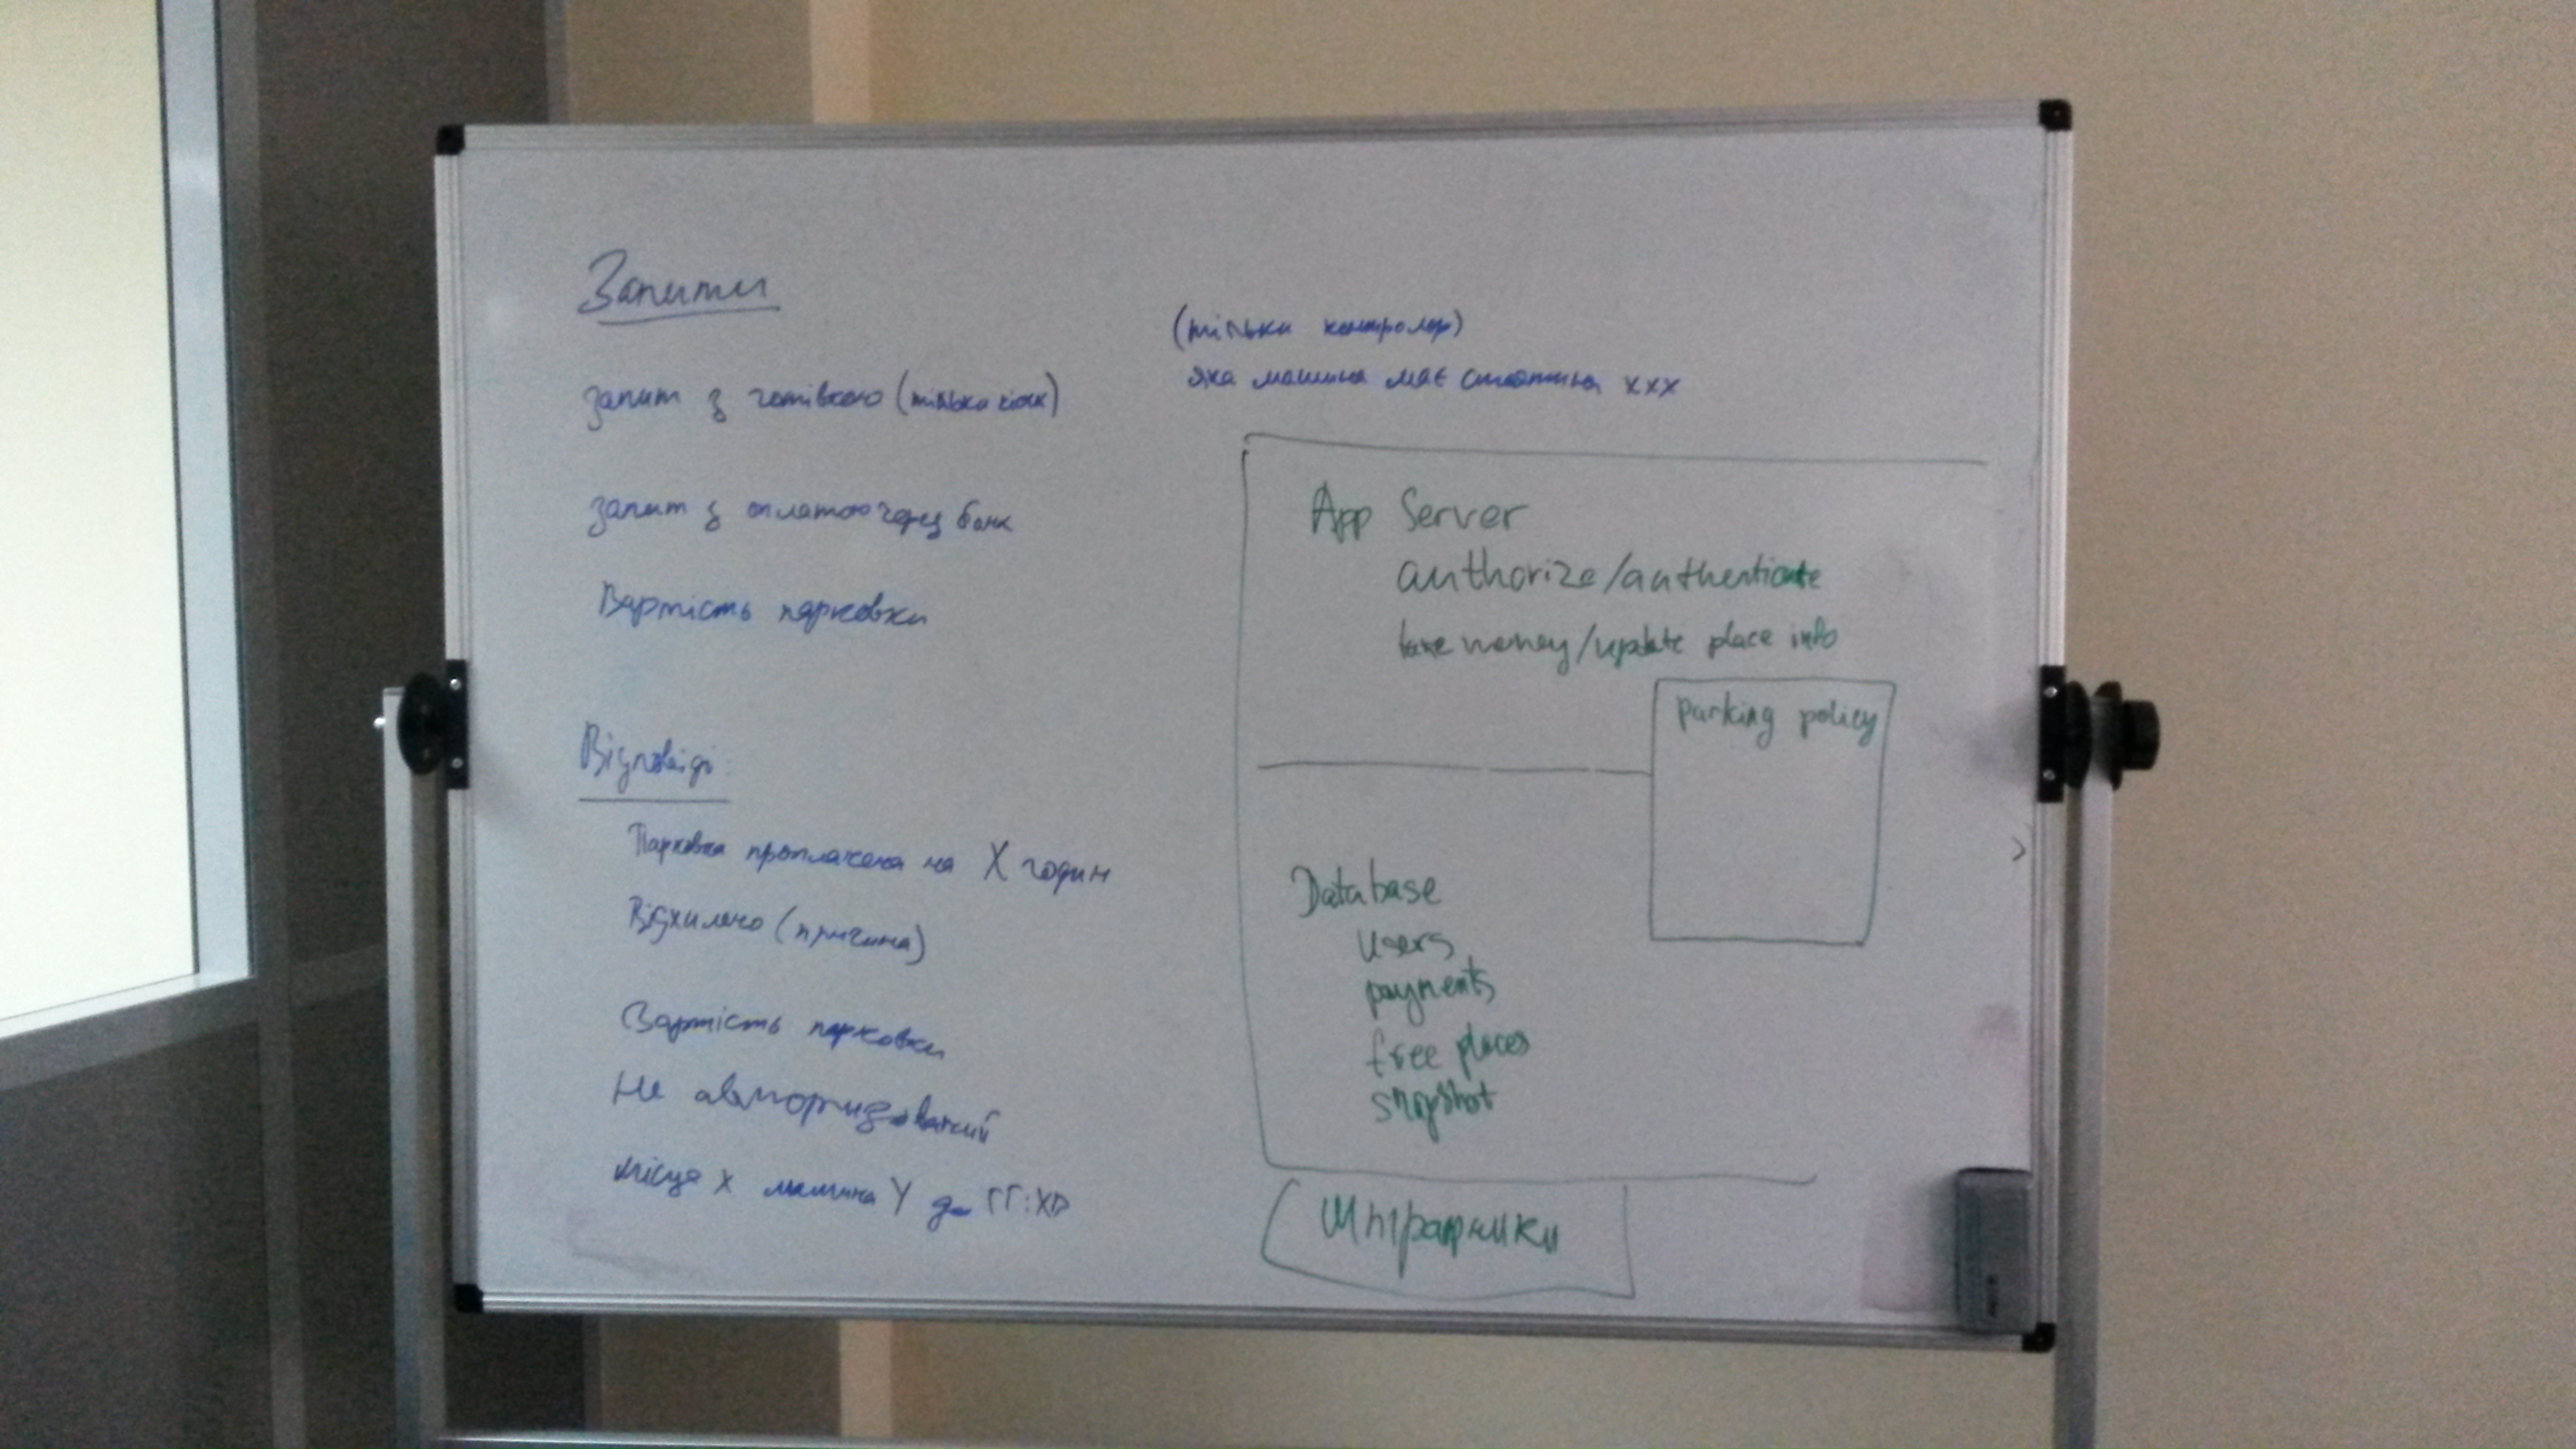 Запити
запит з готівкою (тільки кіоск)
запит з оплатою через банк
Вартість парковки
Відповіді:
Парковка проплачена на X годин
Відхилено (причина)
Вартість парковки
Не авторизований
місце X машина Y до ГГ:ХВ
(тільки контролер)
яка машина має XXX
App Server
authorize/authenticate
take money/update place info
parking policy
Database
users
payments
free places
snapshot
Штрафники